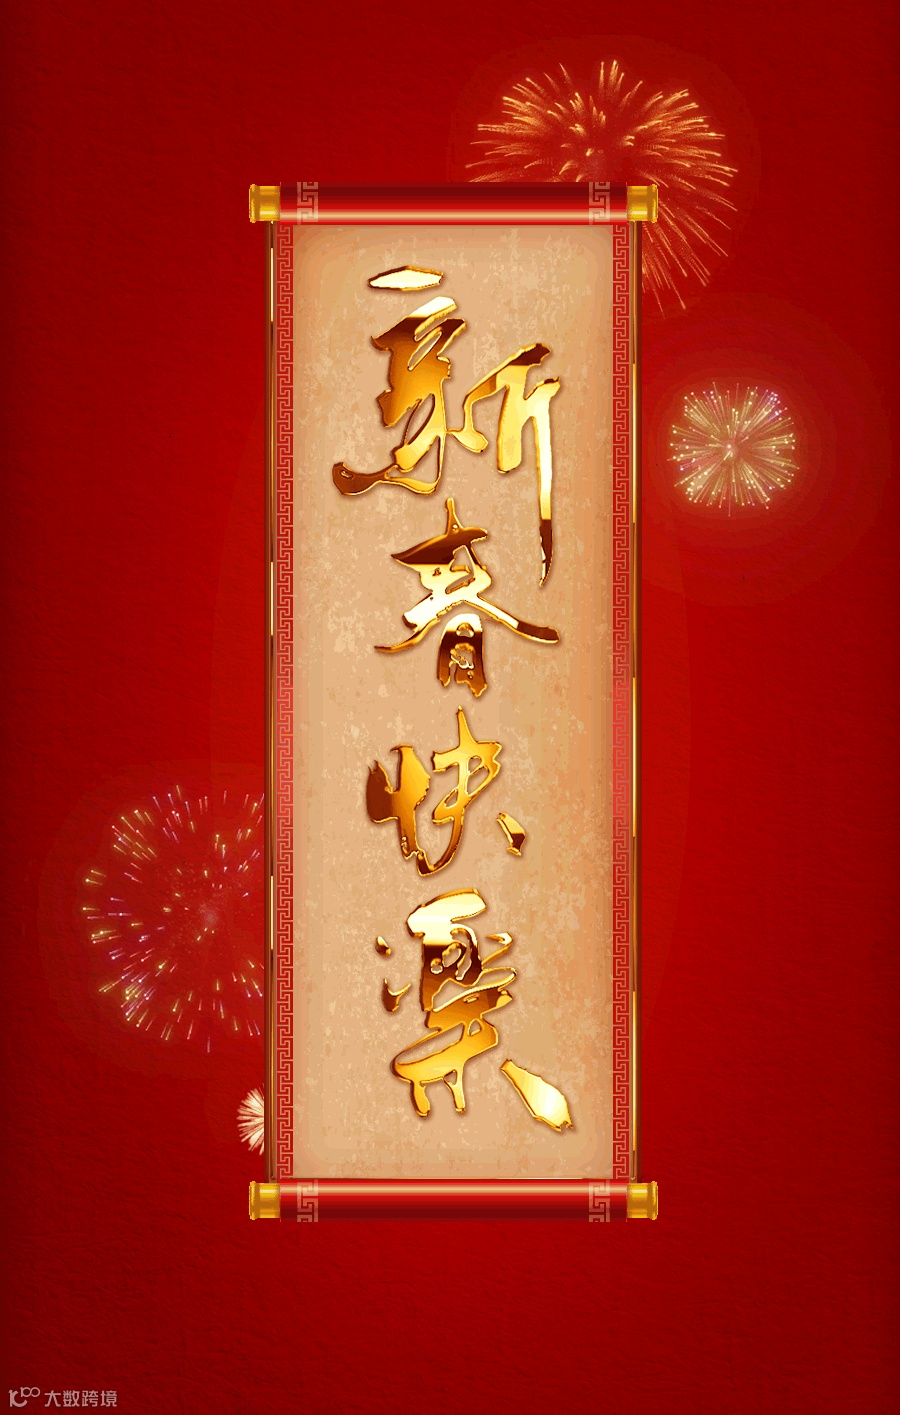 新春快樂
大数跨境